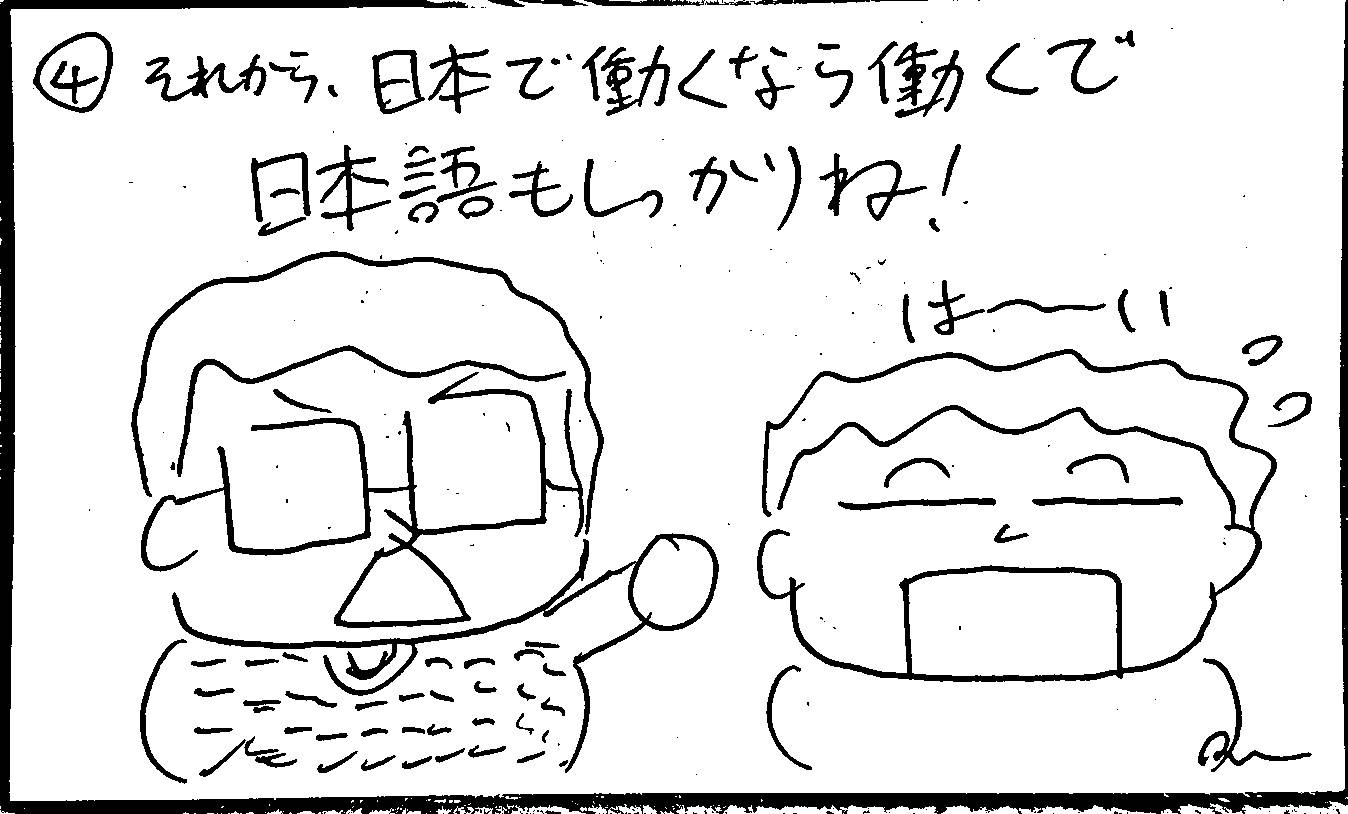 ④それから、日本で働くなら働くで
日本語もしっかりね!
は〜い